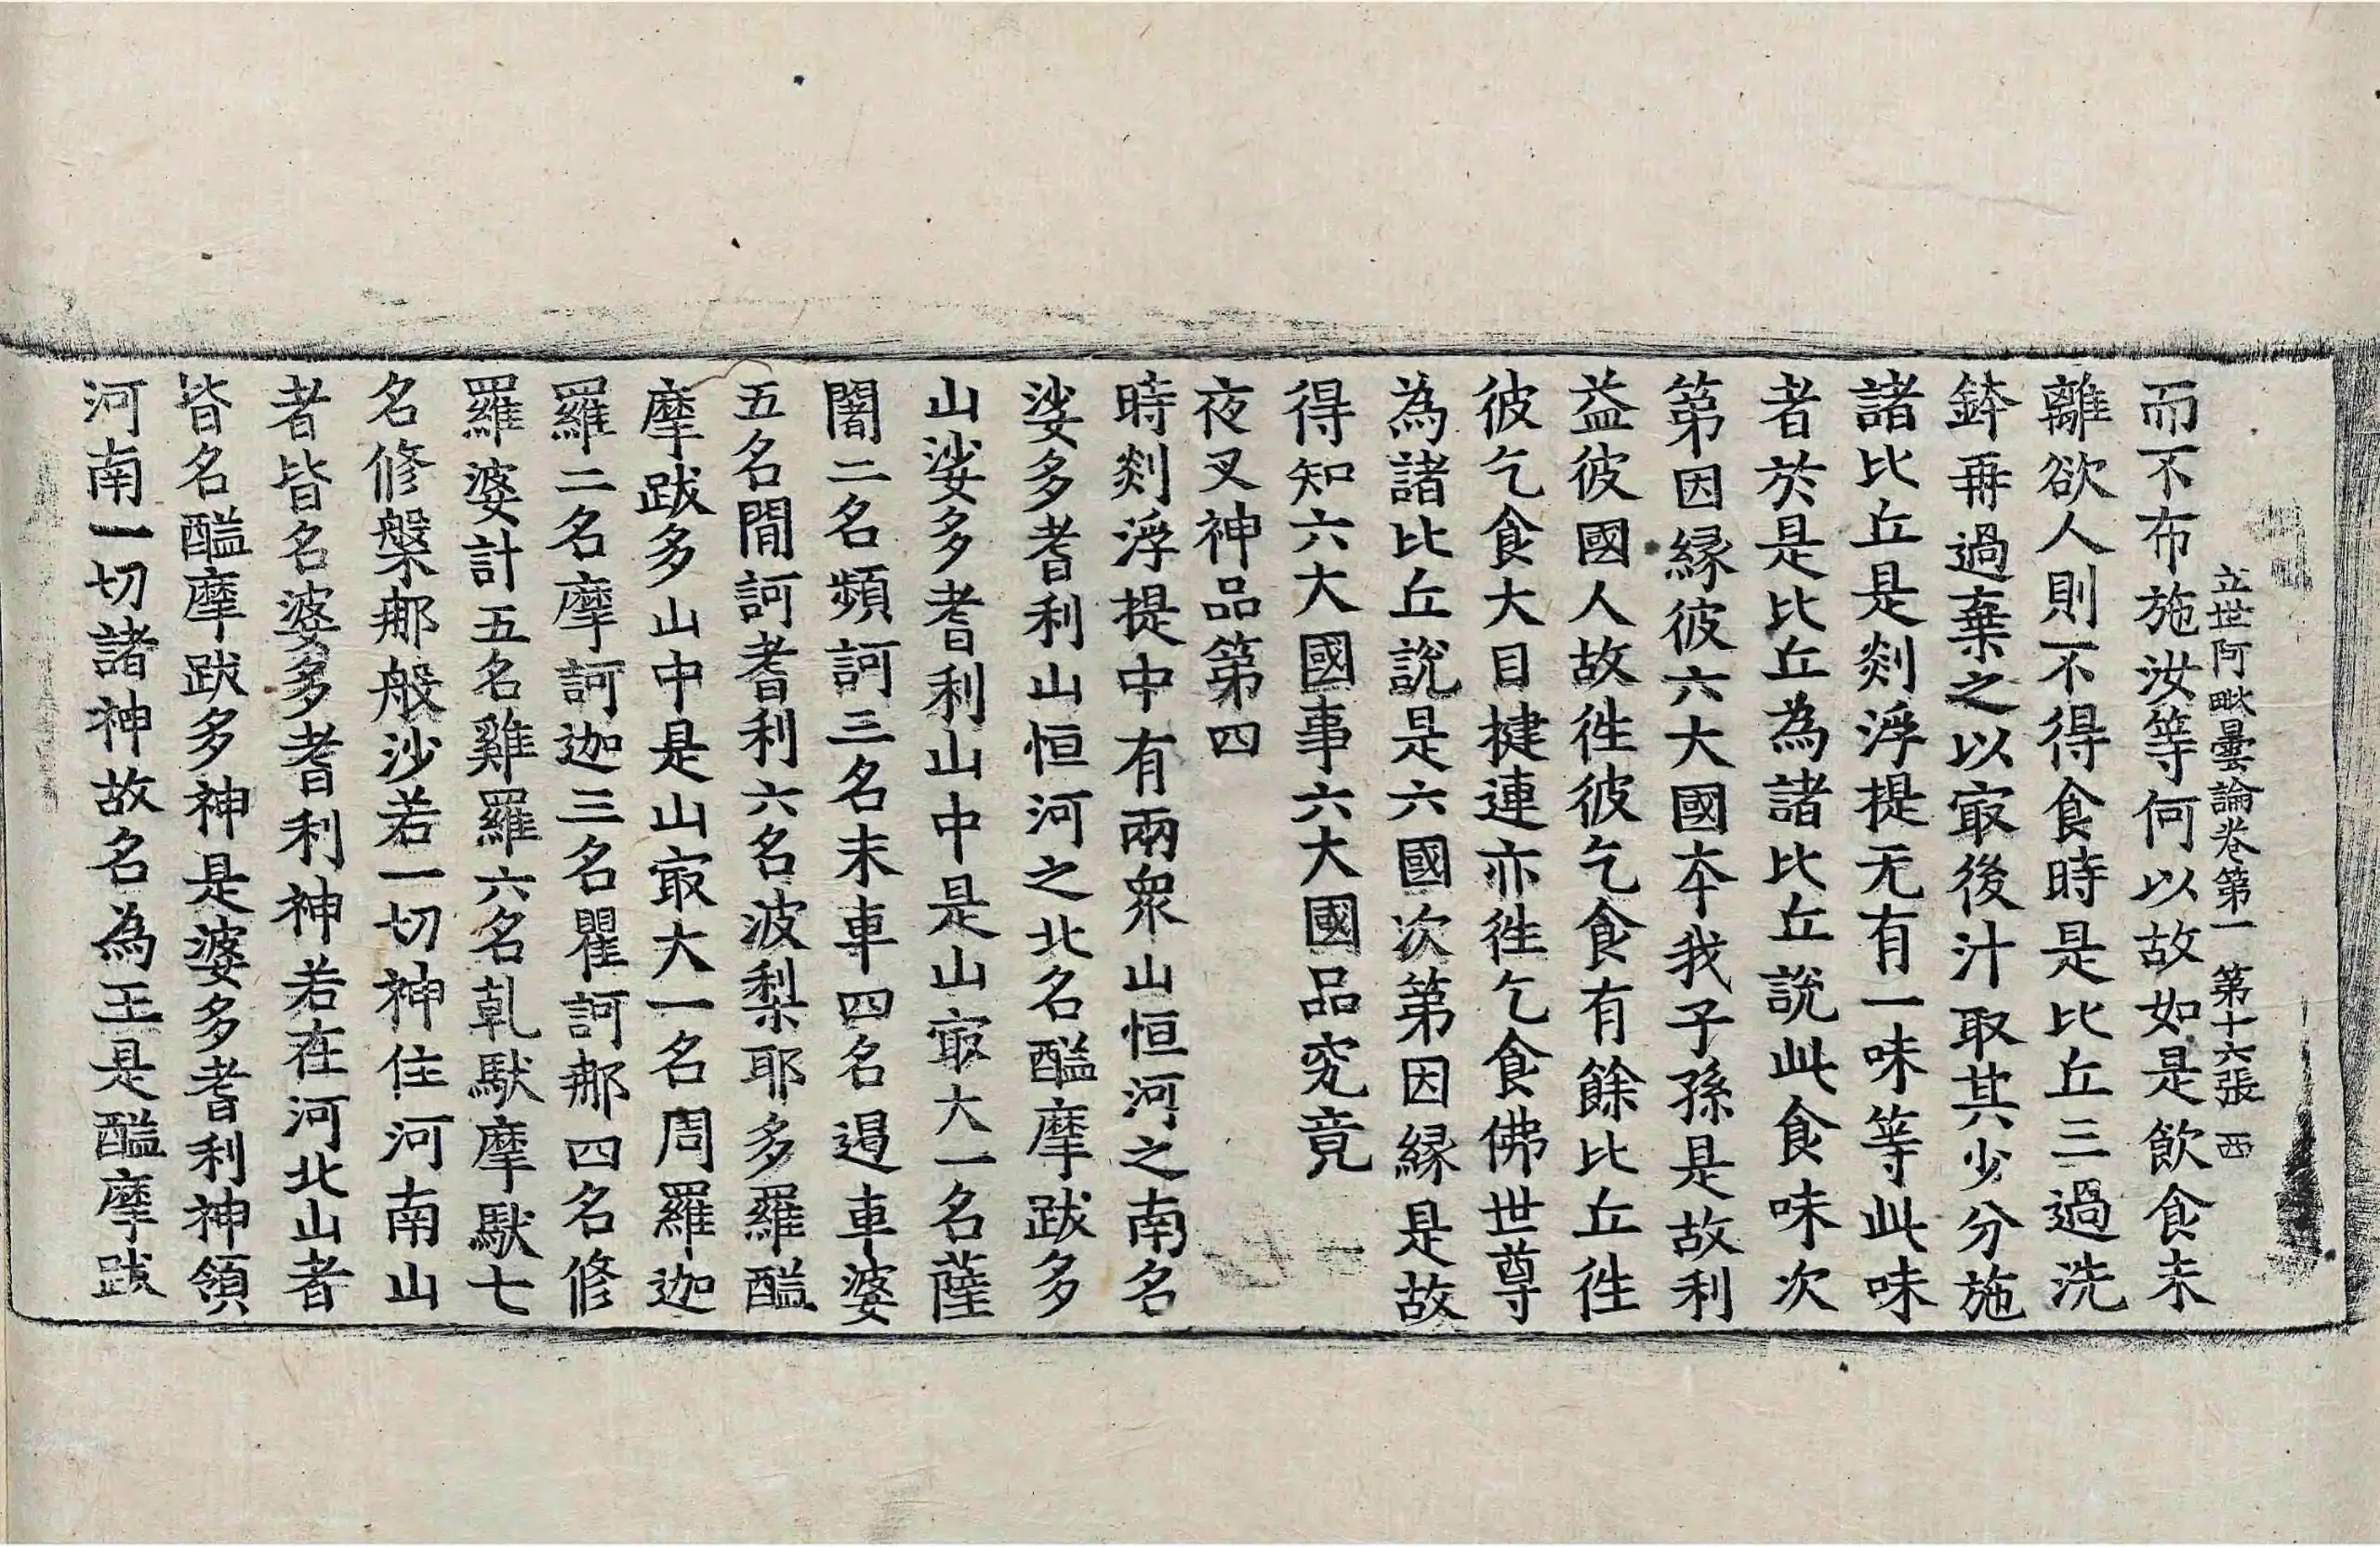 立世阿毗曇論卷第一 第十六張 西
而不布施汝等何以故如是飲食未
離欲人則不得食時是比丘三過洗
鉢再過棄之以㝡後汁取其少分施
諸比丘是剡浮提无有一味等此味
者於是比丘為諸比丘說此食味次
第因緣彼六大國夲我子孫是故利
益彼國人故徃彼乞食有餘比丘徃
彼乞食大目揵連亦徃乞食佛世尊
為諸比丘說是六國次第因緣是故
得知六大國事六大國品究竟
夜叉神品第四
時剡浮提中有兩衆山恒河之南名
娑多耆利山恒河之北名醯摩跋多
山娑多耆利山中是山㝡大一名薩
闍二名頻訶三名末車四名遏車婆
五名閒訶耆利六名波梨耶多羅醯
摩跋多山中是山㝡大一名周羅迦
羅二名摩訶迦三名瞿訶那四名修
羅婆計五名雞羅六名乹馱摩馱七
名修槃那般沙若一切神住河南山
者皆名婆多耆利神若在河北山者
皆名醯摩跋多神是婆多耆利神領
河南一切諸神故名為王是醯摩跋